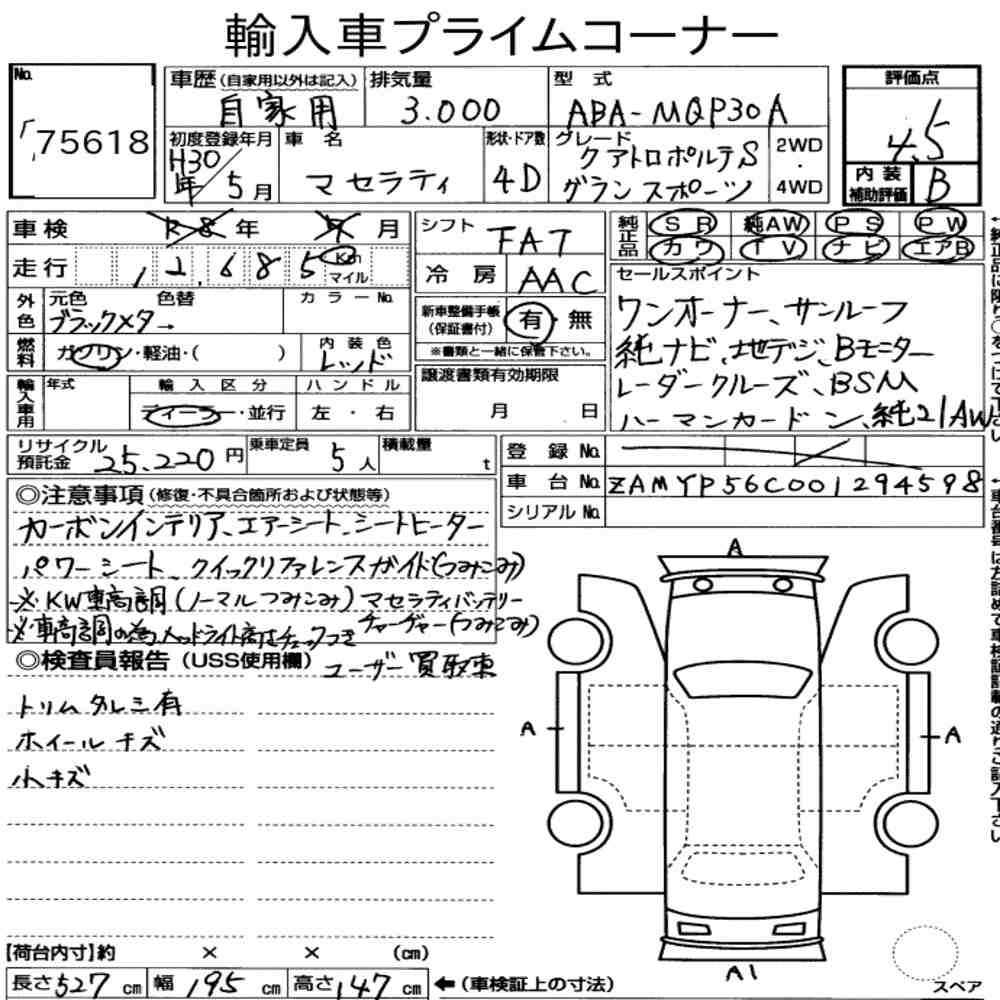 輸入車プライムコーナー
No.
75618
車歴(自家用以外は記入)
自家用
排気量
3.000
型式
ABA-MQP30A
評価点
4.5
初度登録年月
H30年/5月
車名
マセラティ
形状・ドア数
4D
グレード
クアトロポルテS
グランスポーツ
2WD
・
4WD
内装
補助評価
B
車検
R8年 4月
走行
12,685
Km
マイル
シフト
FA7
冷房
AAC
純正品
SR 純AW PS PW
カワ TV ナビ エアB
外色
元色 色替
ブラックメター→
カラーNo.
燃料
ガソリン・軽油・( )
内装色
レッド
新車整備手帳
(保証書付)
有・無
※書類と一緒に保管下さい。
セールスポイント
ワンオーナー、サンルーフ
純ナビ、地デジ、Bモニター
レーダークルーズ、BSM
ハーマンカードン、純21AW
輸入車用
年式
輸入区分
ディーラー・並行
ハンドル
左・右
譲渡書類有効期限
月 日
リサイクル
預託金
25.220円
乗車定員
5人
積載量
t
登録No.
車台No.
ZAMYP56C001294598
シリアルNo.
◎注意事項(修復・不具合箇所および状態等)
カーボンインテリア、エアーシート、シートヒーター
パワーシート、クイックリファレンスガイド(つみこみ)
※KW車高調(ノーマルつみこみ)マセラティバッテリー
チャージャー(つみこみ)
※車高調の為、ヘッドライト高さチェックつき
◎検査員報告(USS使用欄)
ユーザー買取車
トリムタルミ有
ホイールキズ
小キズ
A
A
A
A1
スペア
【荷台内寸】約 × × (cm)
長さ527cm 幅195cm 高さ147cm
←(車検証上の寸法)